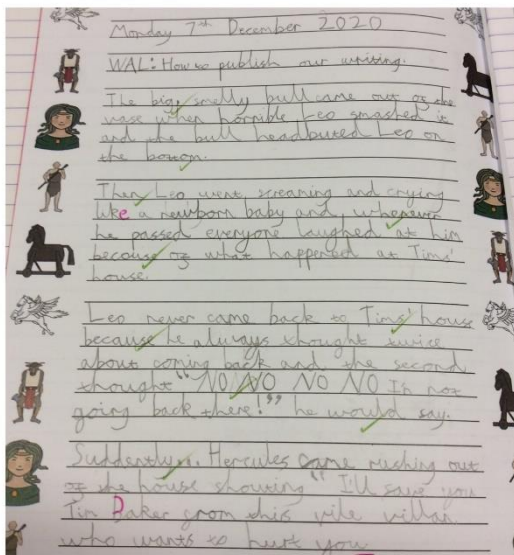 Monday 7th December 2020
WAL: How to publish our writing.
The big, smelly bull came out of the
vase when horrible Leo smashed it
and the bull headbuted Leo on
the bottom.
Then Leo went screaming and crying
like a newborn baby and whenever
he passed everyone laughed at him
because of what happened at Tims'
house.
Leo never came back to Tims' house
because he always thought twice
about coming back and the second
thought "NO NO NO NO Im not
going back there!" he would say.
Suddenly... Hercules came rushing out
of the house shouting "I'll save you
Tim Baker from this vile villan
who wants to hurt you